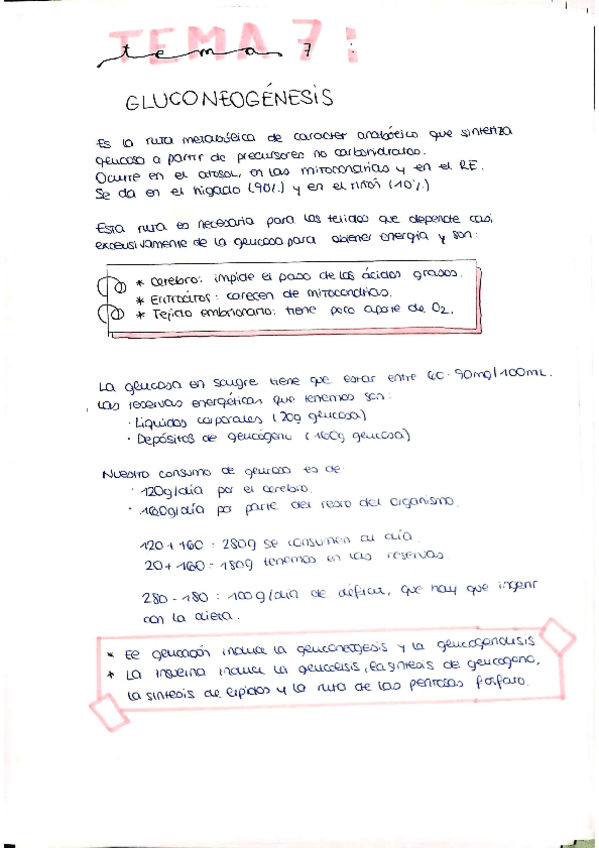 TEMA 7:
tema 7
GLUCONEOGÉNESIS
Es la ruta metabólica de caracter anabólico que sintetiza
glucosa a partir de precursores no carbohidratos.
Ocurre en el citosol, en las mitocondrias y en el RE.
Se da en el hígado (90%) y en el riñón (10%)
Esta ruta es necesaria para los tejidos que depende casi
exclusivamente de la glucosa para obtener energía y son:
* Cerebro: impide el paso de los ácidos grasos.
* Eritrocitos: carecen de mitocondrias.
* Tejido embrionario: tiene poco aporte de O2.
La glucosa en sangre tiene que estar entre 60-90mg/100mL.
Las reservas energéticas que tenemos son:
· Líquidos corporales (20g glucosa)
· Depósitos de glucógeno (160g glucosa)
Nuestro consumo de glucosa es de:
· 120g/día por el cerebro.
· 160g/día por parte del resto del organismo.
120 + 160 = 280g se consumen al día.
20 + 160 = 180g tenemos en las reservas.
280 - 180 = 100g/día de déficit, que hay que ingerir
con la dieta.
* El glucagón induce la gluconeogesis y la glucogenolisis
* La insulina induce la glucolisis, la síntesis de glucógeno,
la síntesis de lípidos y la ruta de las pentosas fosfato.